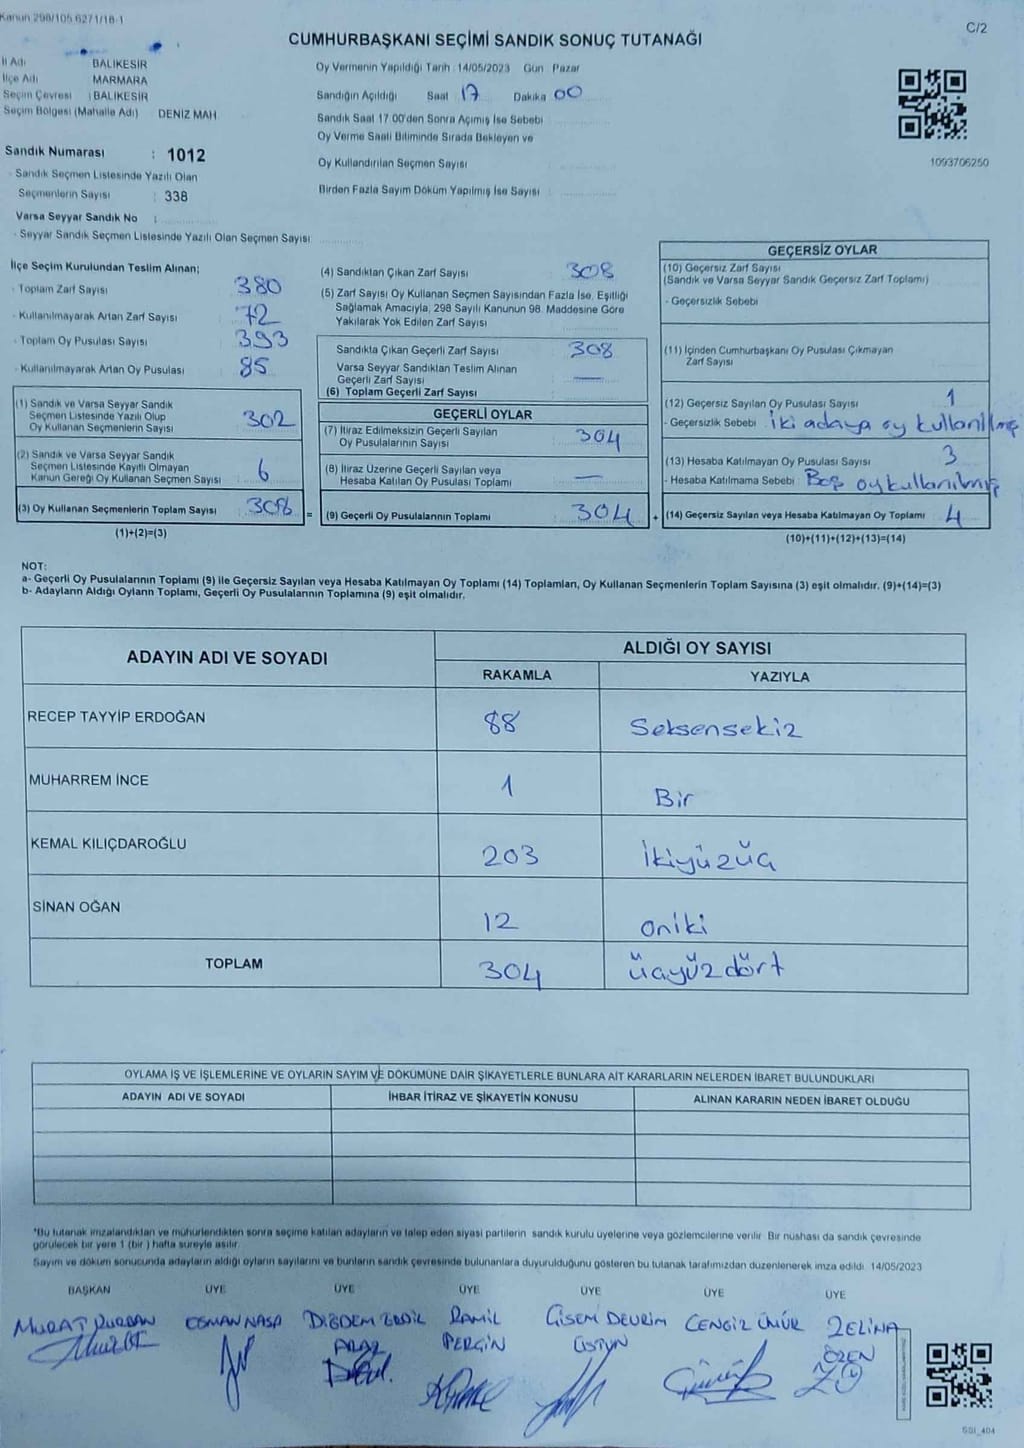 Kanun 298/105 627 1/18-1
C/2
CUMHURBAŞKANI SEÇİMİ SANDIK SONUÇ TUTANAĞI
İl Adı BALIKESİR
İlçe Adı MARMARA
Seçim Çevresi : BALIKESİR
Seçim Bölgesi (Mahalle Adı) DENİZ MAH
Oy Vermenin Yapıldığı Tarih :14/05/2023 Gün Pazar
Sandığın Açıldığı Saat 17 Dakika 00
Sandık Saat 17 00'den Sonra Açımış İse Sebebi
Oy Verme Saati Bitiminde Sırada Bekleyen ve
Oy Kullandırılan Seçmen Sayısı
Birden Fazla Sayım Döküm Yapılmış İse Sayısı
1093706250
Sandık Numarası : 1012
- Sandık Seçmen Listesinde Yazılı Olan
Seçmenlerin Sayısı : 338
Varsa Seyyar Sandık No :
- Seyyar Sandık Seçmen Listesinde Yazılı Olan Seçmen Sayısı
İlçe Seçim Kurulundan Teslim Alınan;
- Toplam Zarf Sayısı 380
- Kullanılmayarak Artan Zarf Sayısı 72
- Toplam Oy Pusulası Sayısı 393
- Kullanılmayarak Artan Oy Pusulası 85
(1) Sandık ve Varsa Seyyar Sandık
Seçmen Listesinde Yazılı Olup
Oy Kullanan Seçmenlerin Sayısı 302
(2) Sandık ve Varsa Seyyar Sandık
Seçmen Listesinde Kayıtlı Olmayan
Kanun Gereği Oy Kullanan Seçmen Sayısı 6
(3) Oy Kullanan Seçmenlerin Toplam Sayısı 308 =
(1)+(2)=(3)
(4) Sandıktan Çıkan Zarf Sayısı 308
(5) Zarf Sayısı Oy Kullanan Seçmen Sayısından Fazla İse, Eşitliği
Sağlamak Amacıyla, 298 Sayılı Kanunun 98. Maddesine Göre
Yakılarak Yok Edilen Zarf Sayısı
Sandıkta Çıkan Geçerli Zarf Sayısı 308
Varsa Seyyar Sandıktan Teslim Alınan
Geçerli Zarf Sayısı —
(6) Toplam Geçerli Zarf Sayısı
GEÇERLİ OYLAR
(7) İtiraz Edilmeksizin Geçerli Sayılan
Oy Pusulalarının Sayısı 304
(8) İtiraz Üzerine Geçerli Sayılan veya
Hesaba Katılan Oy Pusulası Toplamı —
(9) Geçerli Oy Pusulalarının Toplamı 304 +
GEÇERSİZ OYLAR
(10) Geçersiz Zarf Sayısı
(Sandık ve Varsa Seyyar Sandık Geçersiz Zarf Toplamı)
- Geçersizlik Sebebi
(11) İçinden Cumhurbaşkanı Oy Pusulası Çıkmayan
Zarf Sayısı
(12) Geçersiz Sayılan Oy Pusulası Sayısı 1
- Geçersizlik Sebebi İki adaya oy kullanılmış
(13) Hesaba Katılmayan Oy Pusulası Sayısı 3
- Hesaba Katılmama Sebebi Boş oy kullanılmış
(14) Geçersiz Sayılan veya Hesaba Katılmayan Oy Toplamı 4
(10)+(11)+(12)+(13)=(14)
NOT:
a- Geçerli Oy Pusulalarının Toplamı (9) ile Geçersiz Sayılan veya Hesaba Katılmayan Oy Toplamı (14) Toplamları, Oy Kullanan Seçmenlerin Toplam Sayısına (3) eşit olmalıdır. (9)+(14)=(3)
b- Adayların Aldığı Oyların Toplamı, Geçerli Oy Pusulalarının Toplamına (9) eşit olmalıdır.
ADAYIN ADI VE SOYADI
ALDIĞI OY SAYISI
RAKAMLA YAZIYLA
RECEP TAYYİP ERDOĞAN 88 Seksensekiz
MUHARREM İNCE 1 Bir
KEMAL KILIÇDAROĞLU 203 İkiyüzüç
SİNAN OĞAN 12 oniki
TOPLAM 304 üçyüzdört
OYLAMA İŞ VE İŞLEMLERİNE VE OYLARIN SAYIM VE DÖKÜMÜNE DAİR ŞİKAYETLERLE BUNLARA AİT KARARLARIN NELERDEN İBARET BULUNDUKLARI
ADAYIN ADI VE SOYADI İHBAR İTİRAZ VE ŞİKAYETİN KONUSU ALINAN KARARIN NEDEN İBARET OLDUĞU
*Bu tutanak imzalandıktan ve mühürlendikten sonra seçime katılan adayların ve talep eden siyasi partilerin sandık kurulu üyelerine veya gözlemcilerine verilir. Bir nüshası da sandık çevresinde
görülecek bir yere 1 (bir ) hafta süreyle asılır.
Sayım ve döküm sonucunda adayların aldığı oyların sayılarını ve bunların sandık çevresinde bulunanlara duyurulduğunu gösteren bu tutanak tarafımızdan düzenlenerek imza edildi. 14/05/2023
BAŞKAN ÜYE ÜYE ÜYE ÜYE ÜYE ÜYE
MURAT KURBAN OSMAN NASA DİĞDEM ERDİL RAMİL GİSEM DEVRİM CENGİZ ÜNÜR ZELİNA
ARAZ PERGİN ÜSTÜN ÖZEN
SSI_404